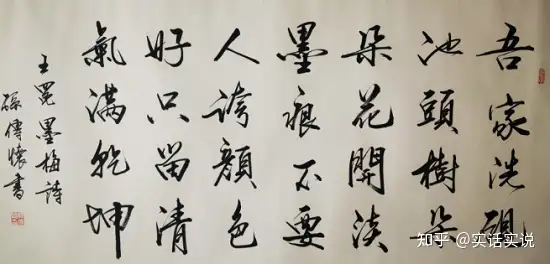 吾家洗硯
池頭樹朵
朵花開淡
墨痕不要
人誇顏色
好只留清
氣滿乾坤
王冕墨梅詩
孫傳懷書
知乎 @实话实说